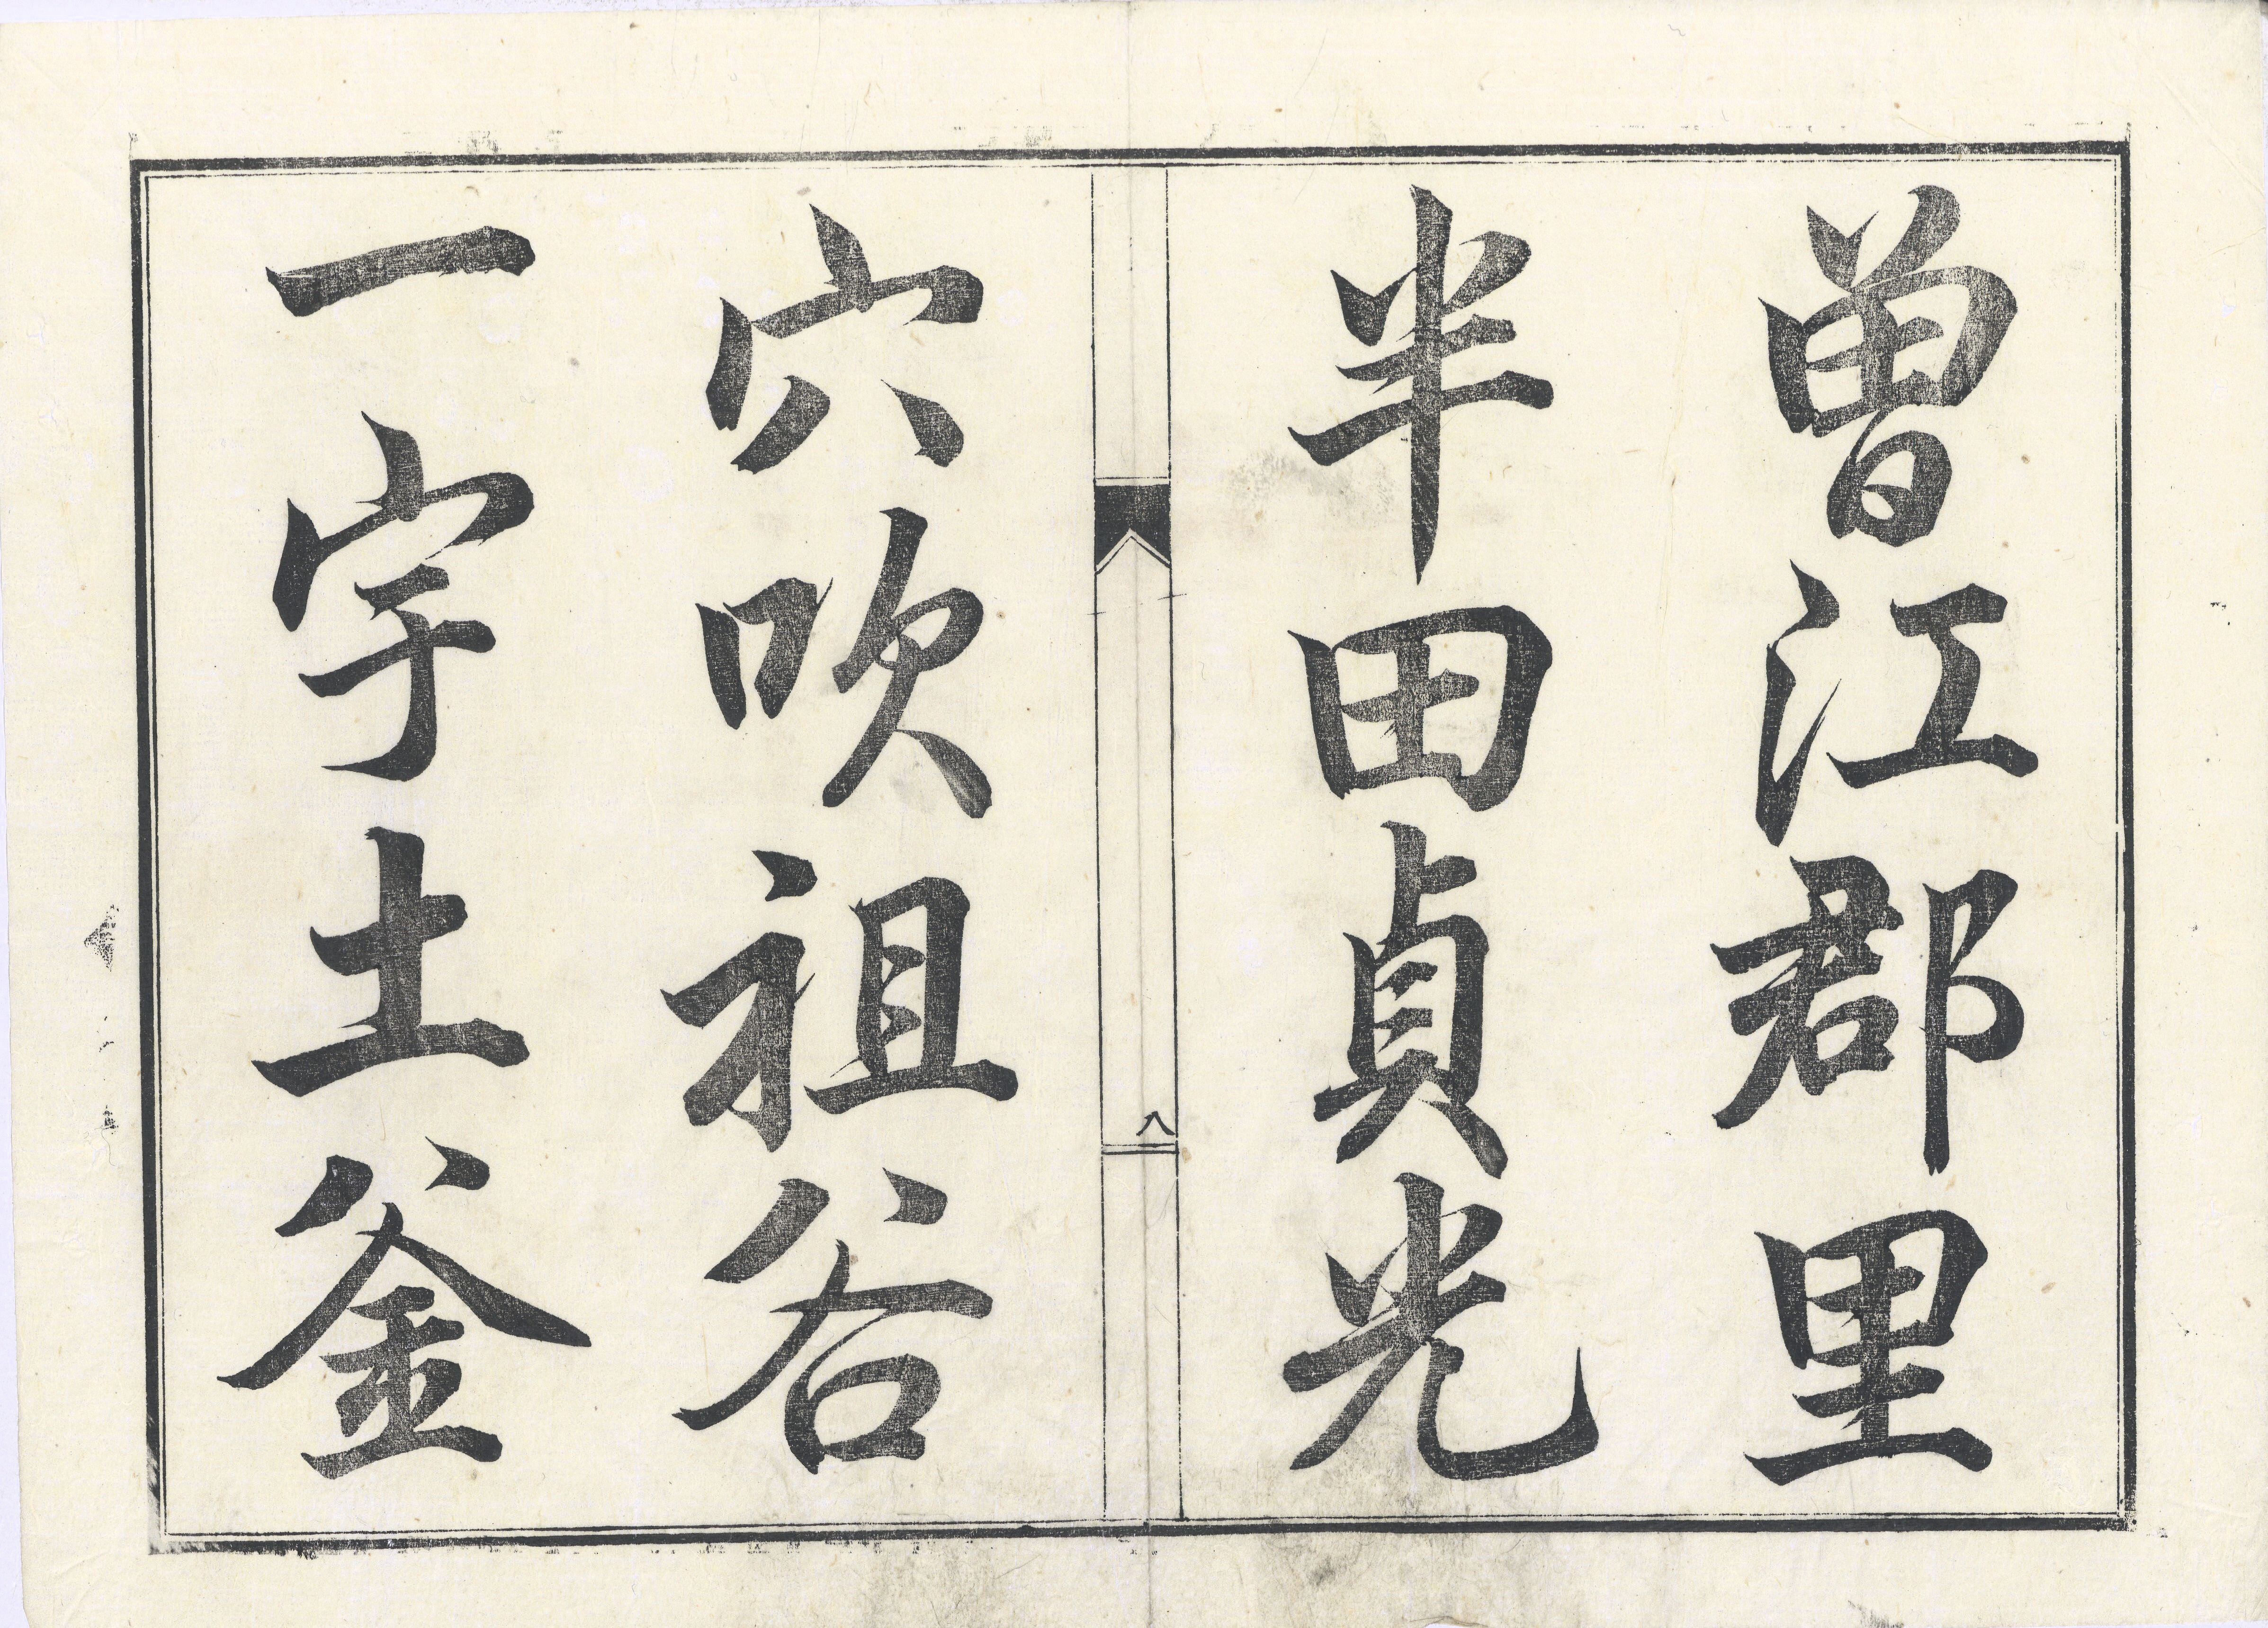 曽江郡里
半田貞光
八
穴吹祖谷
一宇土釜